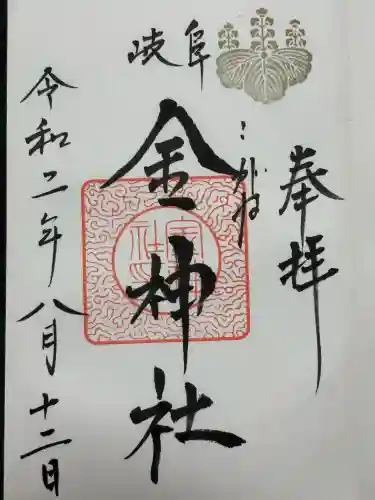 奉拝
岐阜
こがね
金神社
令和二年八月十二日